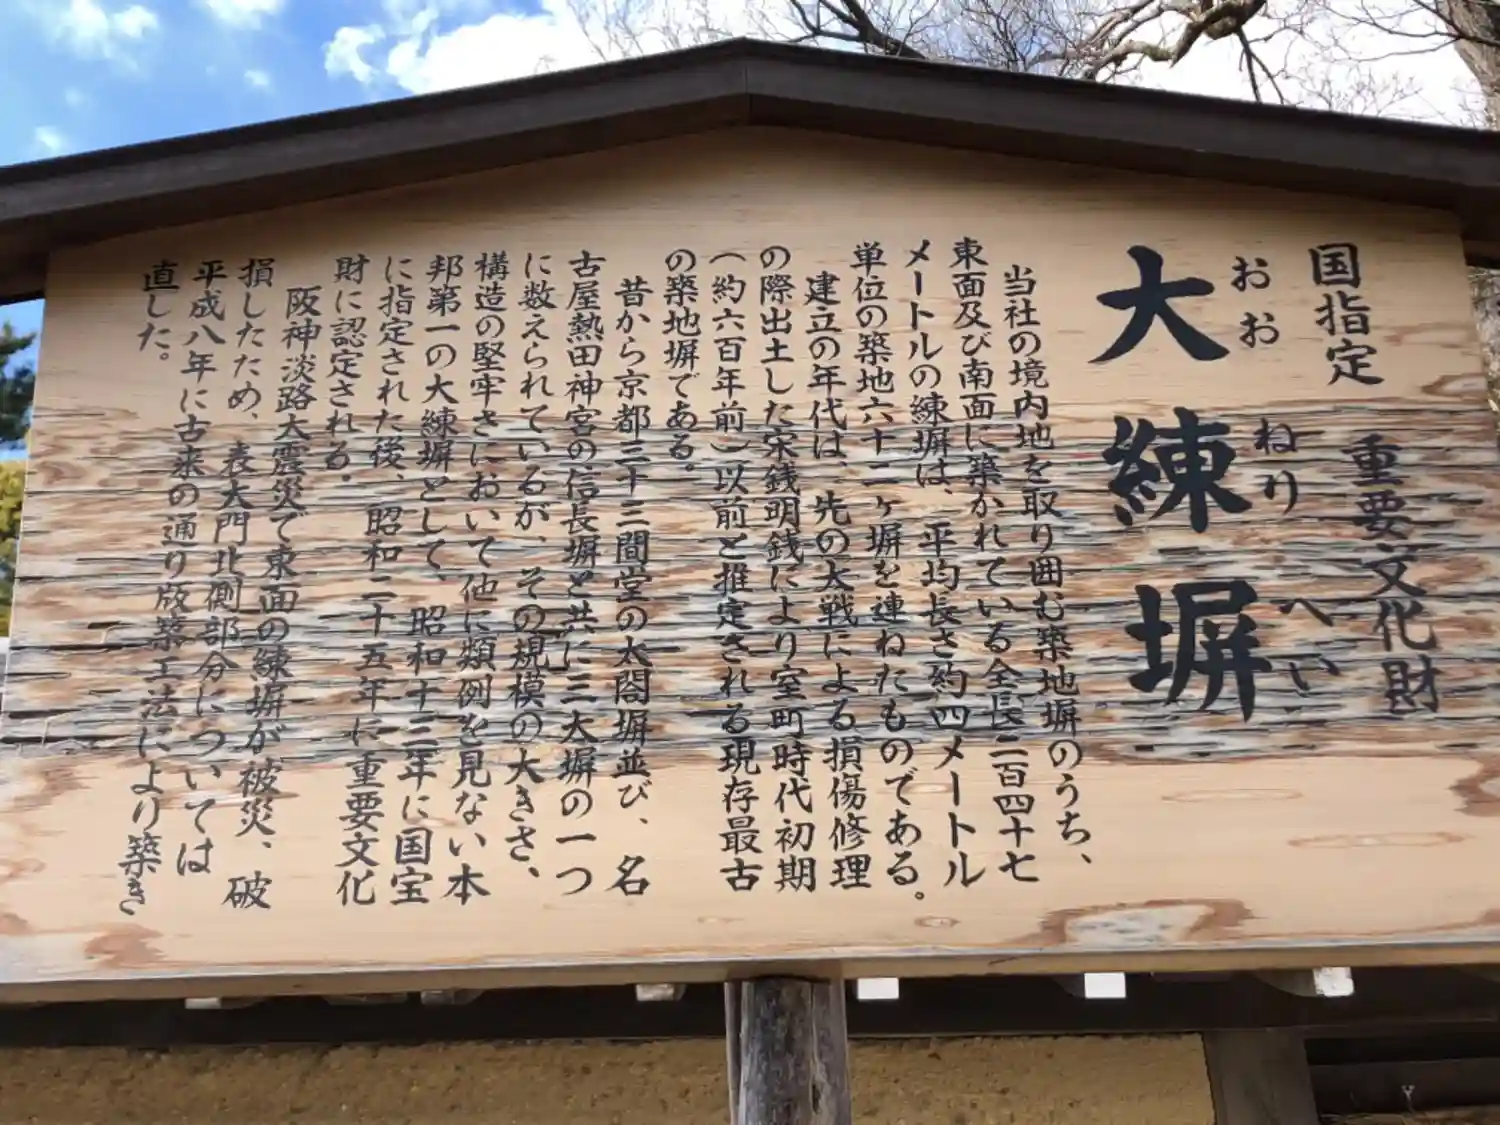 国指定 重要文化財
おお ねり へい
大練塀
当社の境内地を取り囲む築地塀のうち、
東面及び南面に築かれている全長二百四十七
メートルの練塀は、平均長さ約四メートル
単位の築地六十二ヶ塀を連ねたものである。
建立の年代は、先の大戦による損傷修理
の際出土した宋銭明銭により室町時代初期
(約六百年前)以前と推定される現存最古
の築地塀である。
昔から京都三十三間堂の太閤塀並び、名
古屋熱田神宮の信長塀と共に三大塀の一つ
に数えられているが、その規模の大きさ、
構造の堅牢さにおいて他に類例を見ない本
邦第一の大練塀として、昭和十三年に国宝
に指定された後、昭和二十五年に重要文化
財に認定される.
阪神淡路大震災で東面の練塀が被災、破
損したため、表大門北側部分については
平成八年に古来の通り版築工法により築き
直した。